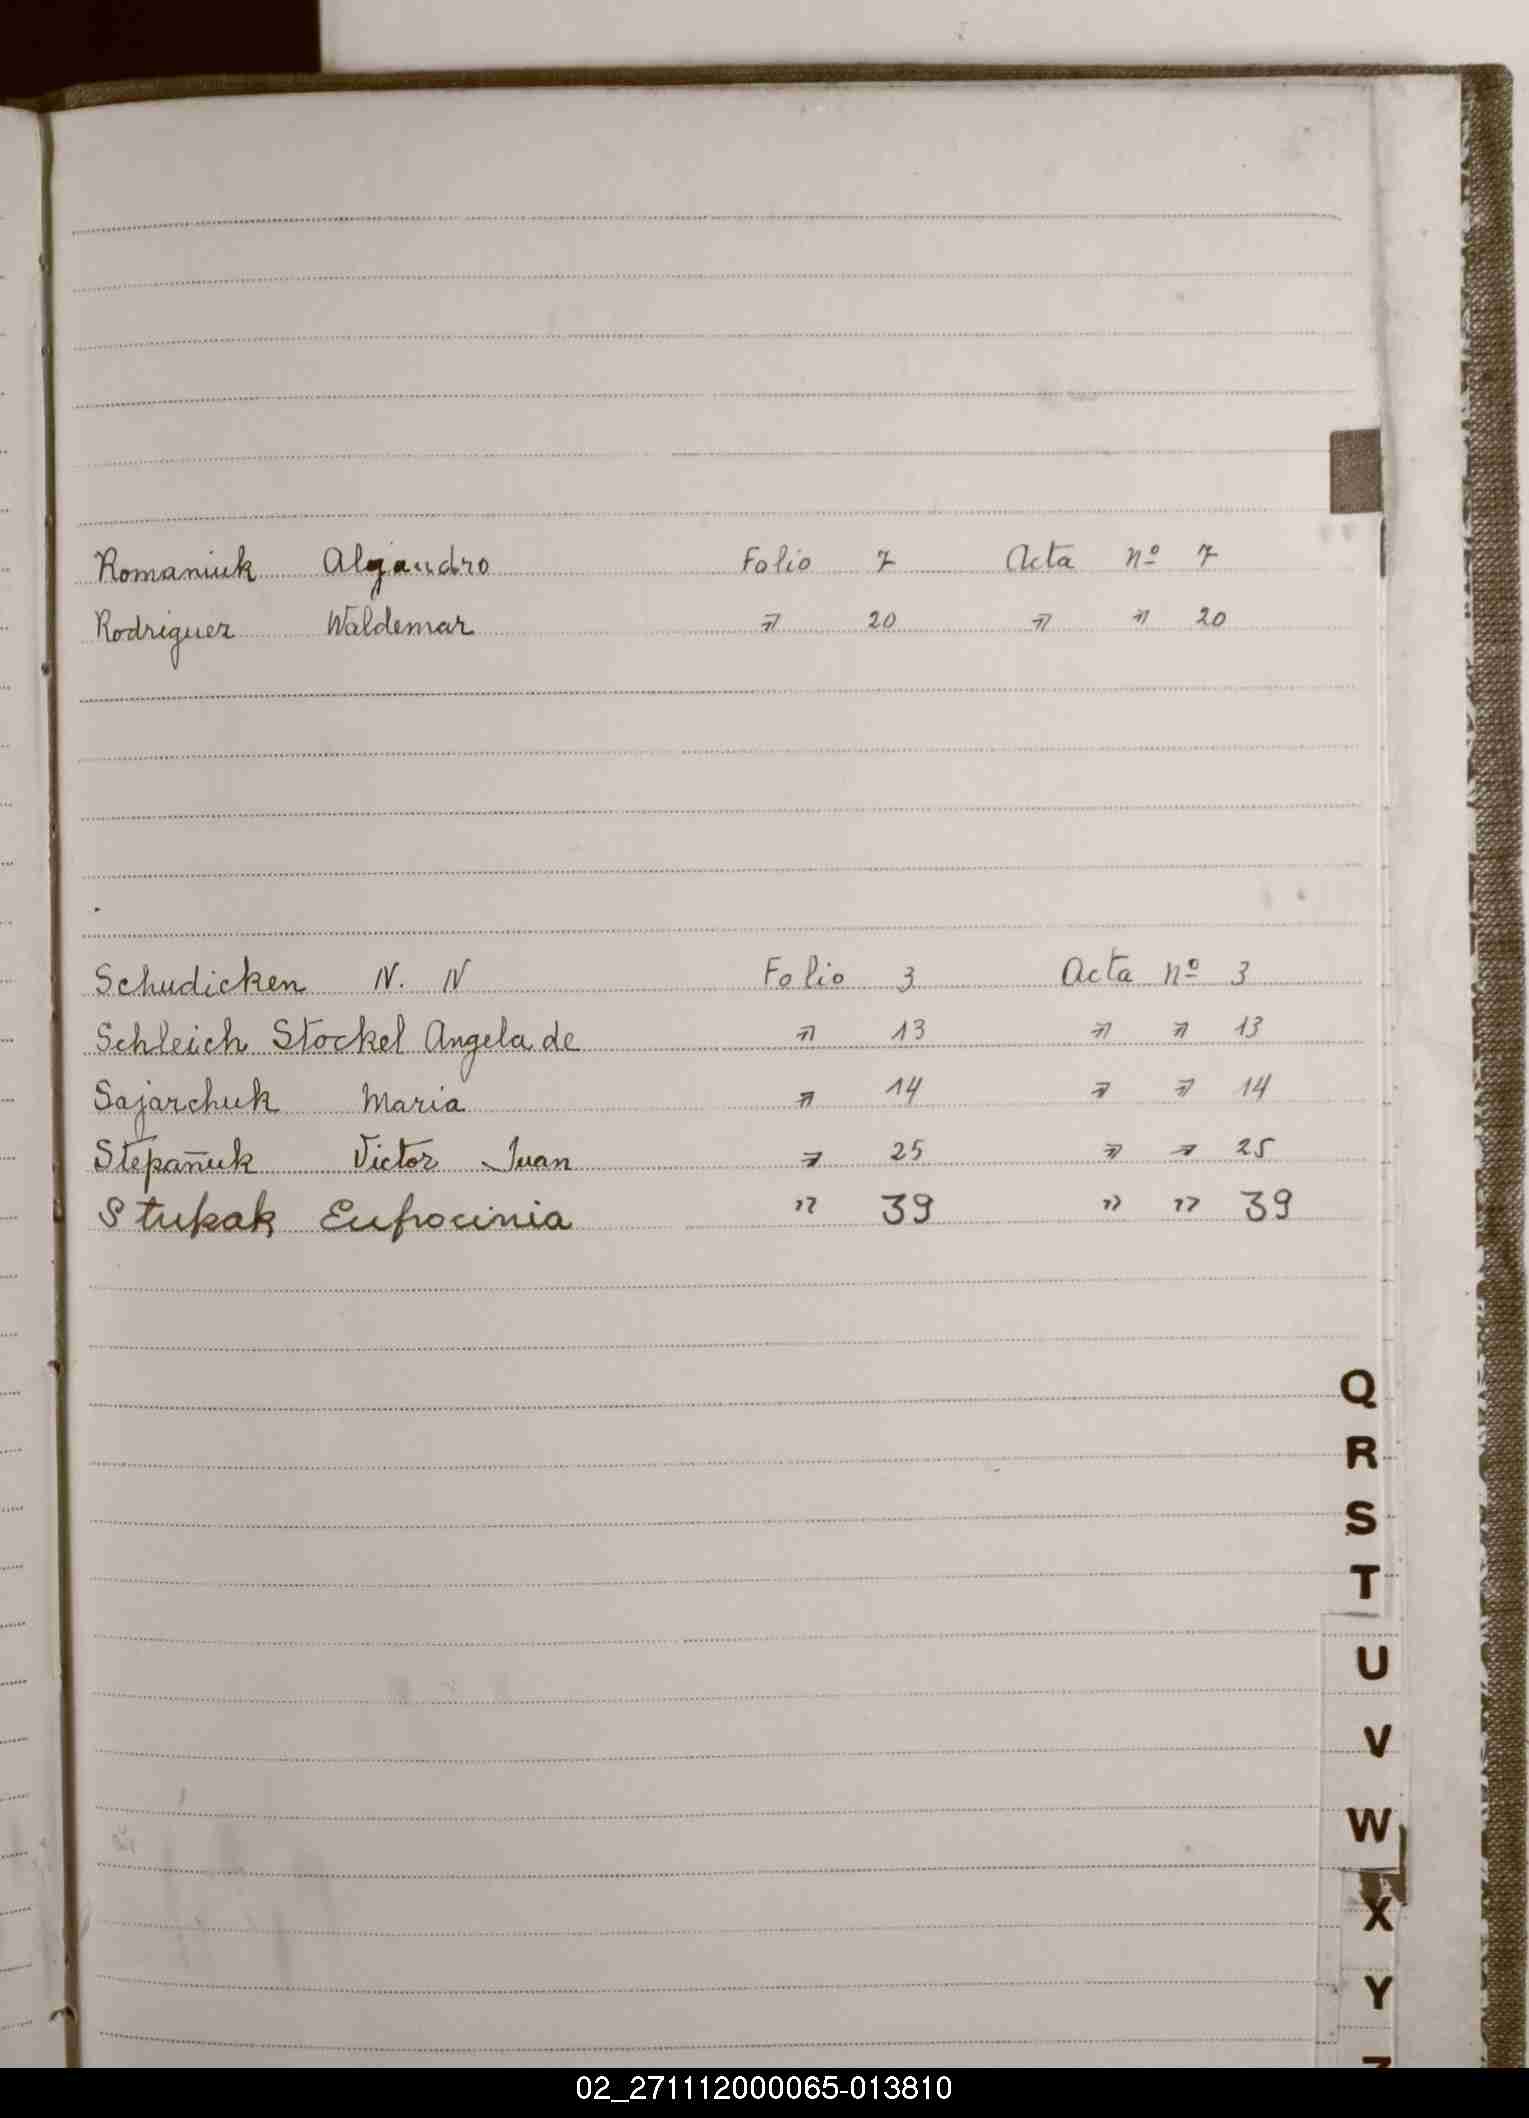 Romaniuk Alejandro Folio 7 Acta nº 7
Rodriguez Waldemar " 20 " " 20
Schudicken N. N Folio 3 Acta nº 3
Schleich Stockel Angela de " 13 " " 13
Sajarchuk Maria " 14 " " 14
Stepañuk Victor Juan " 25 " " 25
Stupak Eufrocinia " 39 " " 39
Q
R
S
T
U
V
W
X
Y
Z
02_271112000065-013810